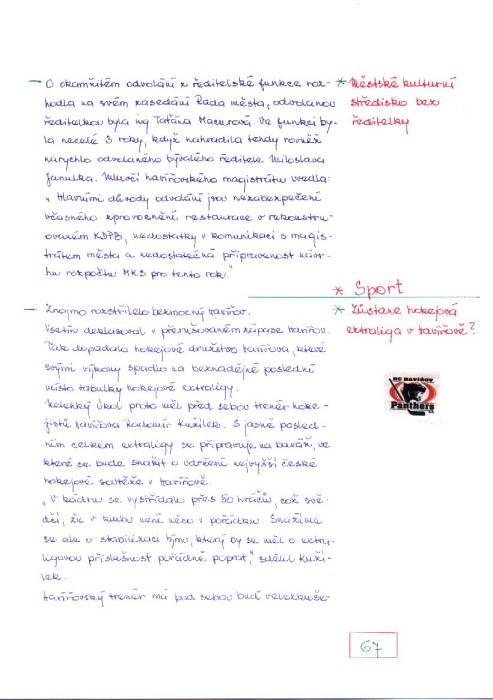 - O okamžitém odvolání z ředitelské funkce roz-
hodla na svém zasedání Rada města, odvolanou
ředitelkou byla ing Taťána Macurová. Ve funkci by-
la necelé 3 roky, když nahradila tehdy rovněž
narychlo odvolaného bývalého ředitele Miloslava
Januška. Mluvčí havířovského magistrátu uvedla:
"Hlavními důvody odvolání jsou nezabezpečení
včasného zprovoznění restaurace v rekonstru-
ovaném KDPB, nedostatky v komunikaci s magis-
trátem města a nedostatečná připravenost návr-
hu rozpočtu MKS pro tento rok."
* Městské kulturní
středisko bez
ředitelky
* Sport
- Znojmo rozstřílelo bezmocný Havířov.
Vsetín deklasoval v přerušovaném zápase Havířov.
Tak dopadalo hokejové družstvo Havířova, které
svými výkony spadlo na beznadějné poslední
místo tabulky hokejové extraligy.
Nelehký úkol proto měl před sebou trenér hoke-
jistů Havířova Radomír Kužílek. S jasně posled-
ním celkem extraligy se připravuje na baráži, ve
které se bude snažit o udržení nejvyšší české
hokejové soutěže v Havířově.
"V kádru se vystřídalo přes 50 hráčů, což svě-
dčí, že v klubu není něco v pořádku. Snažíme
se ale o stabilizaci týmu, který by se měl o extra-
ligovou příslušnost pořádně poprat," sdělil Kuží-
lek.
Havířovský trenér má pod sebou buď velezkuše-
* Zůstane hokejová
extraliga v Havířově?
HC HAVÍŘOV
Panthers
67